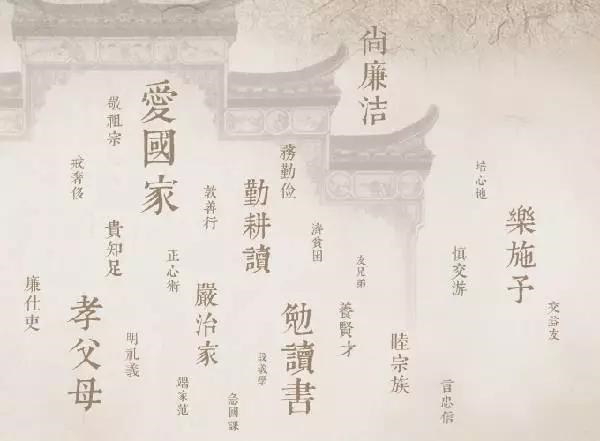 尚廉洁
愛國家
敬祖宗
務勤儉
戒奢侈
培心地
勤耕讀
敦善行
樂施予
貴知足
濟貧困
正心術
慎交游
友兄弟
廉仕吏
嚴治家
孝父母
勉讀書
養賢才
交益友
明礼義
睦宗族
設義學
端家范
言忠信
急國課